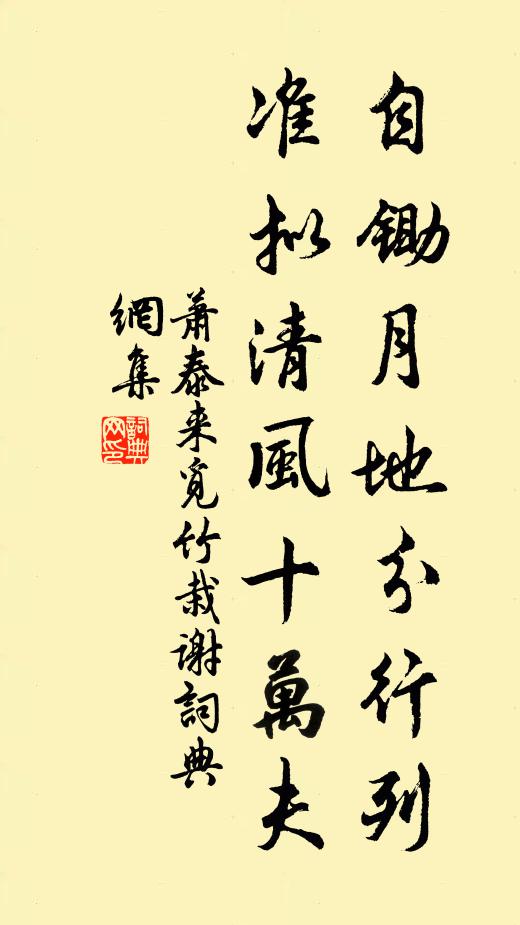 自鋤月地分行列
准拟清風十萬夫
蕭泰来覓竹栽謝詞典
網集
詞典
网印